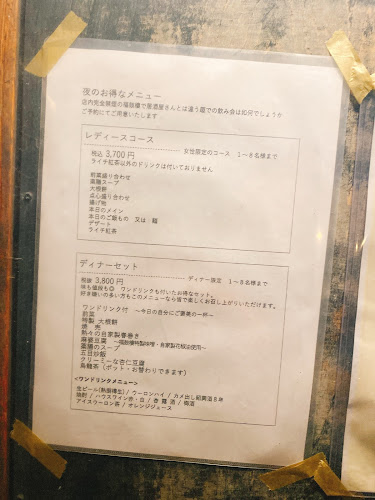 夜のお得なメニュー
店内完全禁煙の福鼓樓で居酒屋さんとは違う趣での飲み会は如何でしょうか
ご予約にてご用意いたします
レディースコース
女性限定のコース 1~8名様まで
税込 3,700円
ライチ紅茶以外のドリンクは付いておりません
前菜盛り合わせ
薬膳スープ
大根餅
点心盛り合わせ
揚げ物
本日のメイン
本日のご飯もの 又は 麺
デザート
ライチ紅茶
ディナーセット
ディナー限定 1~8名様まで
税抜 3,800円
味も値段も◎ ワンドリンクも付いたお得なセット。
好き嫌いの多い方もこのメニューなら皆で楽しくお召し上がりいただけます。
ワンドリンク付 ~今日の自分にご褒美の一杯~
前菜
特製 大根餅
焼売
熱々の自家製春巻き
麻婆豆腐
薬膳のスープ
五目炒飯
クリーミーな杏仁豆腐
烏龍茶(ポット・お替わりできます)
<ワンドリンクメニュー>
生ビール(熱処理) / ウーロンハイ / カメ出し紹興酒8年
焼酎 / ハウスワイン赤・白 / 杏露酒 / 梅酒
アイスウーロン茶 / オレンジジュース